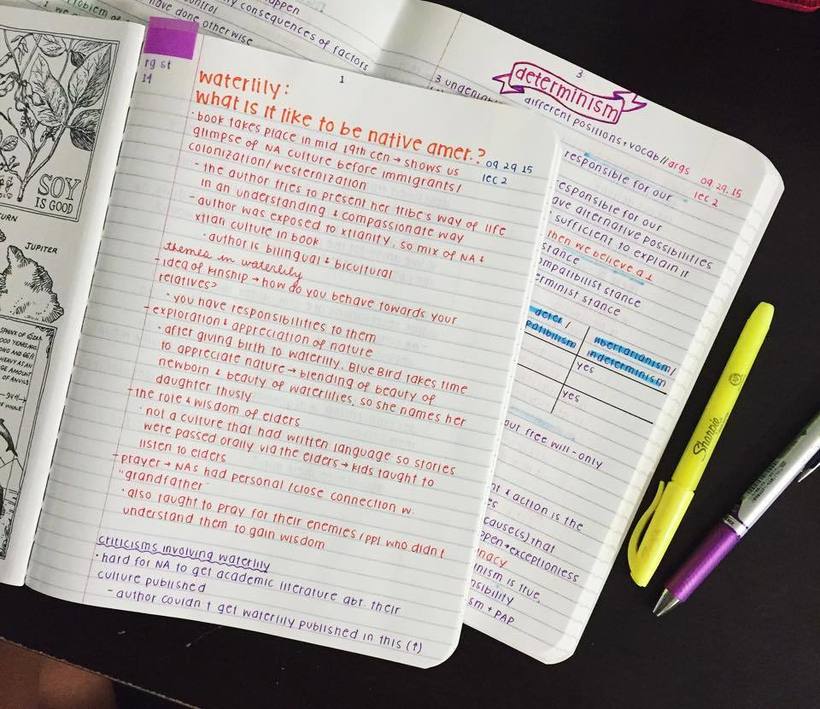 happen
y consequences of factors
control
have done otherwise
SOY
IS GOOD
JUPITER
1
rg st
14
waterlily:
what is it like to be native amer.?
09 29 15
lec 2
· book takes place in mid 19th cen → shows us
glimpse of NA culture before immigrants/
colonization/westernization
- the author tries to present her tribe's way of life
in an understanding & compassionate way
- author was exposed to xtianity, so mix of NA &
xtian culture in book
· author is bilingual & bicultural
themes in waterlily
- idea of kinship → how do you behave towards your
relatives?
· you have responsibilities to them
- exploration & appreciation of nature
· after giving birth to waterlily, Blue Bird takes time
to appreciate nature → blending of beauty of
newborn & beauty of waterlilies, so she names her
daughter thusly
- the role & wisdom of elders
· not a culture that had written language so stories
were passed orally via the elders → kids taught to
listen to elders
- prayer → NAs had personal/close connection w.
"grandfather"
· also taught to pray for their enemies/ppl who didn't
understand them to gain wisdom
criticisms involving waterlily
· hard for NA to get academic literature abt. their
culture published
- author couldn't get waterlily published in this (↑)
3
determinism
different positions + vocab//args
09 29 15
lec 2
responsible for our
responsible for our
ave alternative possibilities
sufficient to explain it
then we believe a +
stance
ompatibilist stance
erminist stance
deter/
patibilism
libertarianism/
indeterminism
yes
yes
our free will-only
t & action is the
es
cause(s) that
ppen + exceptionless
nacy
inism is true,
nsibility
sm + PAP
Sharpie